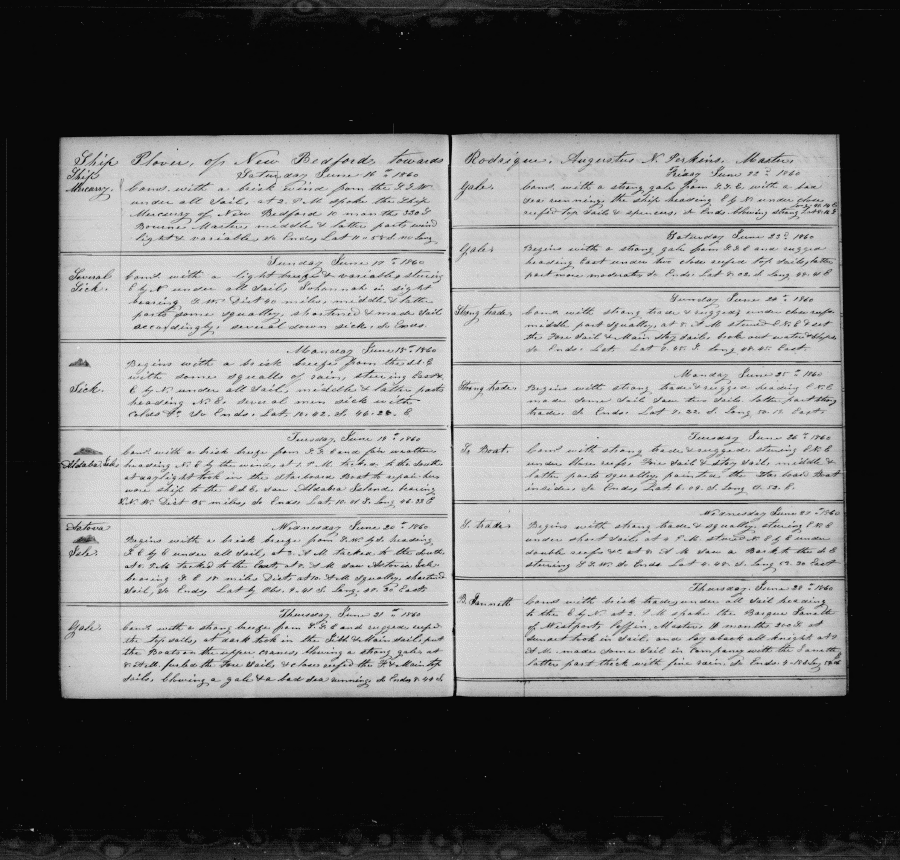 Ship Plover, of New Bedford, towards
Saturday June 16th 1860
Ship
Mercury
Coms. with a brisk wind from the S.S.W.
under all sail, at 2. P.M spoke the Ship
Mercury of New Bedford 10 months
Bourne Master, middle & latter parts wind
light & variable, So Ends, Lat 11-58 S.
Sunday June 17th 1860
Several
Sick.
Coms. with a light breeze & variable, stering
E by N under all sail, Johannah in sight
bearing S.W. Dist 90 miles, middle & latter
parts some squally, shortened & made sail
accordingly, several down sick. So Ends.
Monday June 18th 1860
Sick.
Begins with a brisk breeze from the S.E
with some squalls of rain, stering East &
E by N. under all sail, middle & latter parts
heading N.E. several men sick with
Colds &c. So Ends. Lat. 10.42. S. 46-28. E
Tuesday June 19th 1860
Aldabra Isle
Coms. with a brisk breeze from S.E and fair weather
heading N.E by the wind, at 1. P.M. tacked to the South
at daylight took in the starboard Boat to repair her
wore ship to the E saw Aldabra Island, bearing
N.N.W. Dist 35 miles, So Ends Lat. 10. S. Long 46.33 E
Wednesday June 20th 1860
Astova
Isle
Begins with a brisk breeze from heading
E by E under all sail, at 2. A.M tacked to the South
at P.M tacked to the East, at 7. A.M saw Astova Isle
bearing S.E 18 miles Dist, at 10. A.M squally, shortened
sail, So Ends, Lat by Obs. 9. 41 S. Long. East
Thursday June 21st 1860
Gale.
Coms. with a strong breeze from S.E and rugged, reefed
the top sails, at dark took in the Jibb & Main sail, put
the Boats on the upper cranes, blowing a strong gale, at
A.M. furled the Fore sail & close reefed the F & Main top
sails, blowing a gale & a bad sea running, So Ends
Rodrique, Augustus N. Perkins, Master,
Friday June 22nd 1860
Gale.
Coms. with a strong gale from S.S.E. with a bad
sea running, the ship heading E by N. under close
reefed top sails & spencers, So Ends blowing strong
Saturday June 23rd 1860
Gale.
Begins with a strong gale from S.S.E and rugged
heading East under two close reefed top sails, latter
part more moderate, So Ends. Lat 8.02 S. Long 48. E
Sunday June 24th 1860
Strong trade.
Coms. with strong trade & rugged under close reefs
middle part squally, at 8. A.M stered E.N.E & set
the Fore sail & Main stay sail, took out water &
So Ends. Lat. S. Long 48.45. East.
Monday June 25th 1860
Strong trade.
Begins with strong trade & rugged heading E.N.E
made some sail saw two sails, latter part strong
trade, So Ends. Lat 7.22 S. Long 50.12. East.
Tuesday June 26th 1860
Boat.
Coms. with strong trade & rugged, stering E.N.E
under three reefs Fore sail & Stay sail, middle &
latter parts squally, painted the Starboard Boat
inside, So Ends. Lat 6.04. S. Long 51.52. E.
Wednesday June 27th 1860
S. trade.
Begins with strong trade & squally, stering E.N.E
under short sail, at 4 P.M. stered N.E by E under
double reefs &c. at 8. A.M saw a Bark to the S.E
stering S.S.W. So Ends Lat 4.48. S. Long 52.30 East
Thursday June 28th 1860
B. Fannett
Coms. with brisk trade, under all sail heading
to the E by N. at 2. P.M spoke the Barque Fanette
of Westport, Poffin, Master, months at
sunset took in sail, and lay aback all knight, at 7
A.M. made some sail in Company with the Fanette
latter part thick with fine rain, So Ends